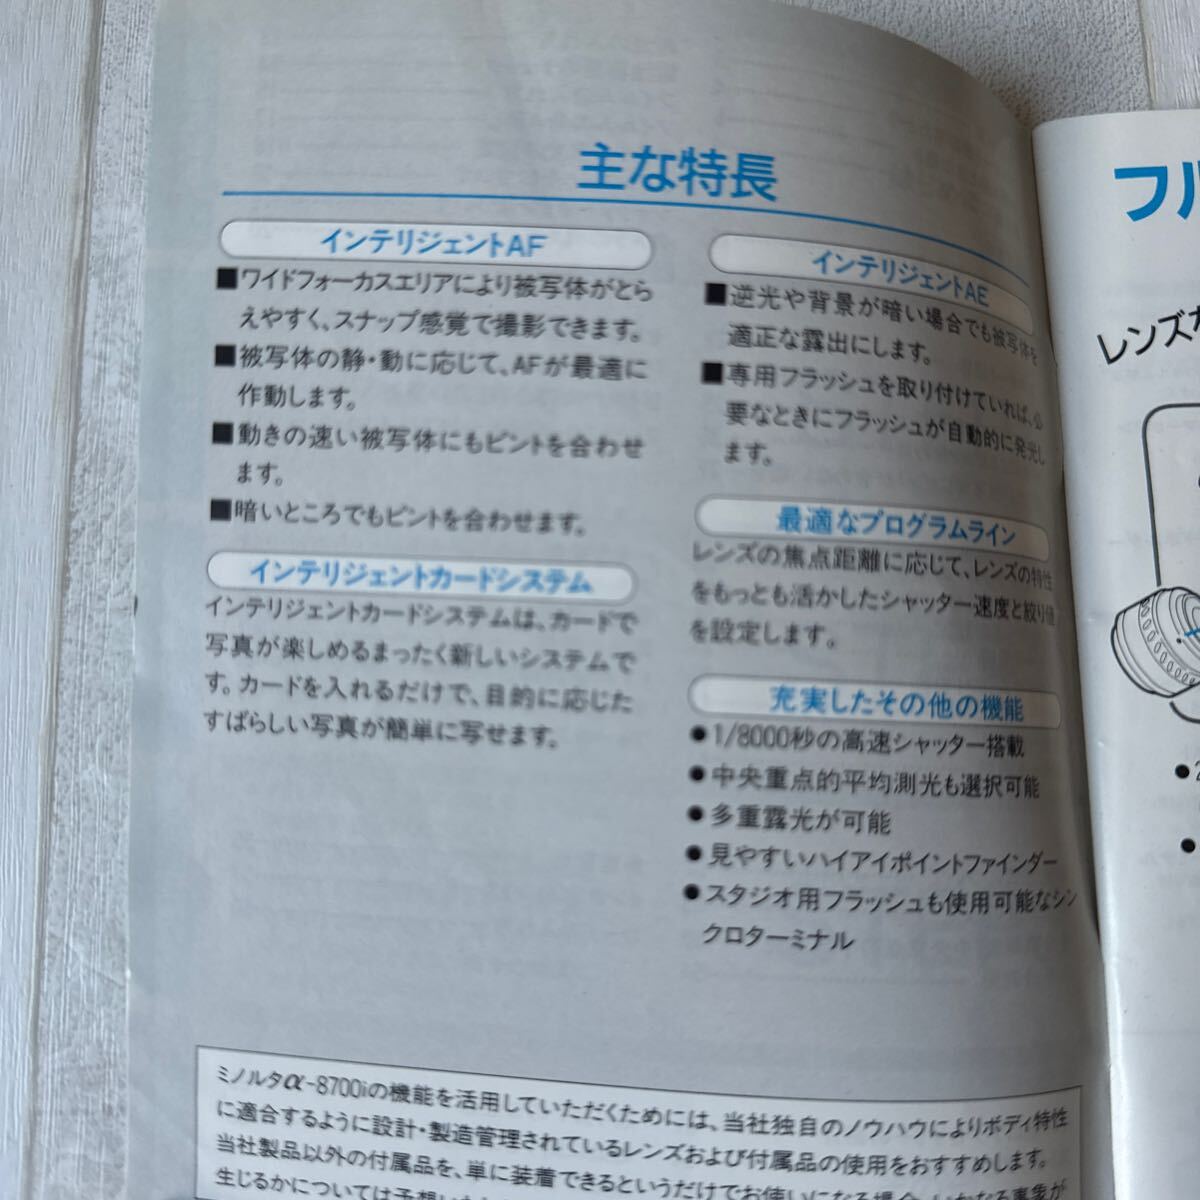 主な特長
インテリジェントAF
■ワイドフォーカスエリアにより被写体がとら
えやすく、スナップ感覚で撮影できます。
■被写体の静・動に応じて、AFが最適に
作動します。
■動きの速い被写体にもピントを合わせ
ます。
■暗いところでもピントを合わせます。
インテリジェントカードシステム
インテリジェントカードシステムは、カードで
写真が楽しめるまったく新しいシステムで
す。カードを入れるだけで、目的に応じた
すばらしい写真が簡単に写せます。
インテリジェントAE
■逆光や背景が暗い場合でも被写体を
適正な露出にします。
■専用フラッシュを取り付けていれば、必
要なときにフラッシュが自動的に発光し
ます。
最適なプログラムライン
レンズの焦点距離に応じて、レンズの特性
をもっとも活かしたシャッター速度と絞り値
を設定します。
充実したその他の機能
●1/8000秒の高速シャッター搭載
●中央重点的平均測光も選択可能
●多重露光が可能
●見やすいハイアイポイントファインダー
●スタジオ用フラッシュも使用可能なシン
クロターミナル
ミノルタα-8700iの機能を活用していただくためには、当社独自のノウハウによりボディ特性
に適合するように設計・製造管理されているレンズおよび付属品の使用をおすすめします。
当社製品以外の付属品を、単に装着できるというだけでお使いになる場合、いかなる事象が
生じるかについては予想
フル
レンズ
●2
●